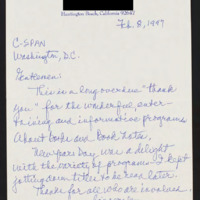 Huntington Beach, California 92647
Feb. 8, 1997
C-SPAN
Washington, D.C.
Gentlemen:
This is a long overdue "thank
you" for the wonderful, enter-
taining and informative programs
About Books and Book Notes.
New Years Day was a delight
with the variety of programs - I kept
jotting down titles to be read later.
Thanks for all who are involved.
Sincerely